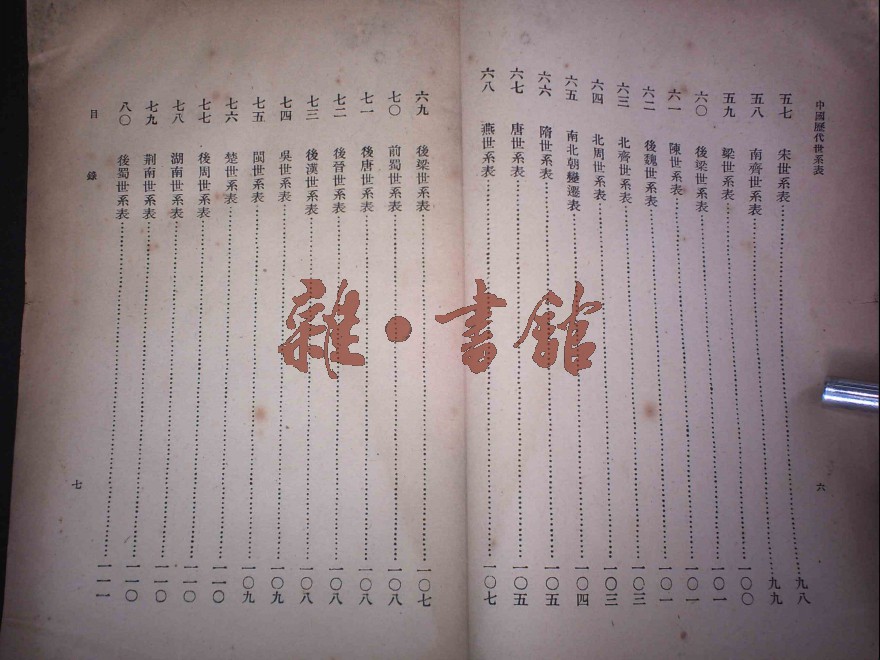 中國歷代世系表
六
五七 宋世系表 九八
五八 南齊世系表 九九
五九 梁世系表 一〇〇
六〇 後梁世系表 一〇一
六一 陳世系表 一〇一
六二 後魏世系表 一〇一
六三 北齊世系表 一〇三
六四 北周世系表 一〇三
六五 南北朝變遷表 一〇四
六六 隋世系表 一〇五
六七 唐世系表 一〇五
六八 燕世系表 一〇七
六九 後梁世系表 一〇七
七〇 前蜀世系表 一〇八
七一 後唐世系表 一〇八
七二 後晉世系表 一〇八
七三 後漢世系表 一〇八
七四 吳世系表 一〇九
七五 閩世系表 一〇九
七六 楚世系表 一一〇
七七 後周世系表 一一〇
七八 湖南世系表 一一〇
七九 荆南世系表 一一〇
八〇 後蜀世系表 一一一
目錄
七
雜·書館